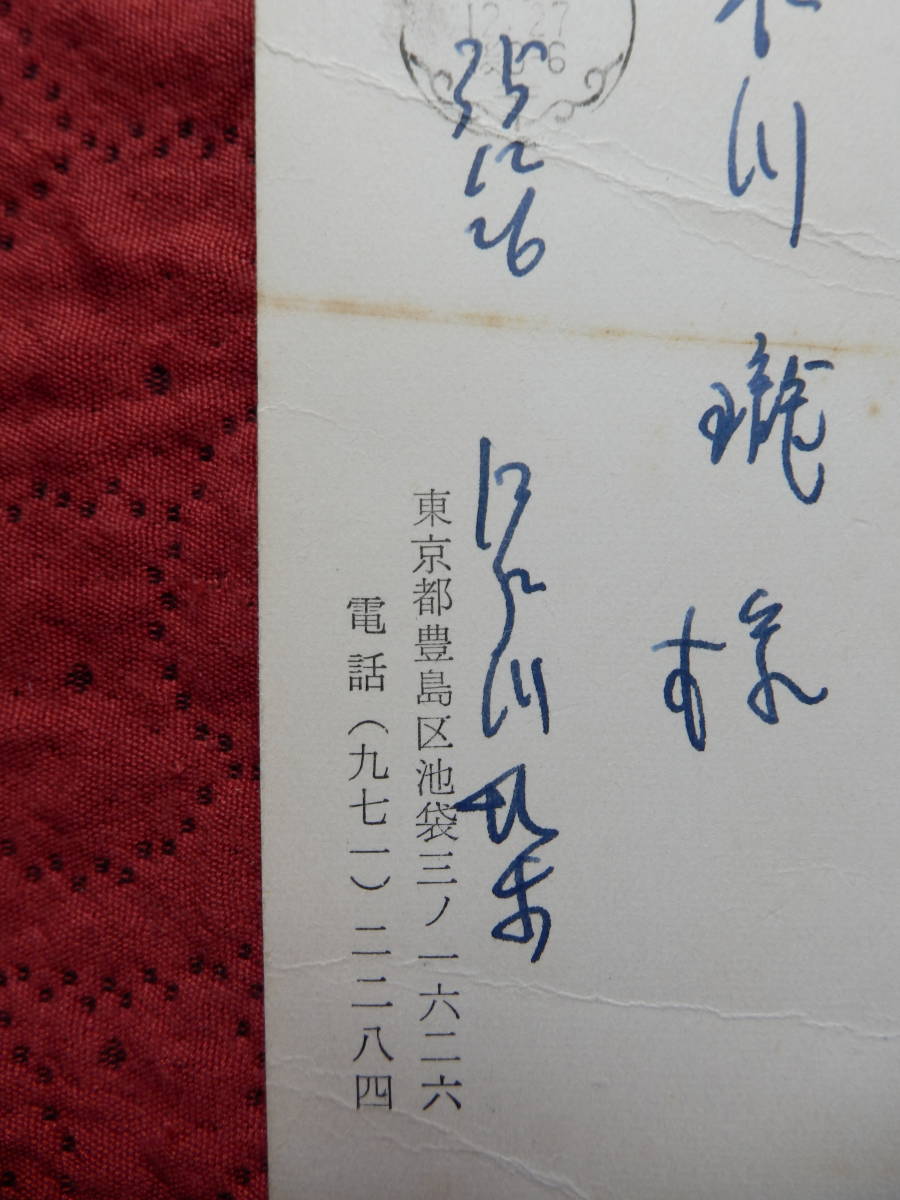 川 瓏 様
12.27
35 12 26
江戸川乱歩
東京都豊島区池袋三ノ一六二六
電話(九七一)二二八四